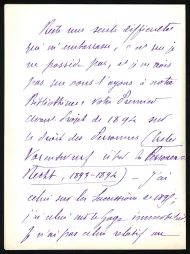 Reste une seule difficulté
qui m'embarrasse, c'est que je
ne possède pas, et je ne crois
pas que nous l'ayons à notre
Bibliothèque, votre Premier
avant-Projet de 1894 sur
le droit des Personnes
Vorentwurf über das Personen-
Recht, 1893-1894) — J'ai
celui sur les Successions de 1895,
j'ai celui sur le Gage immobilier
Je n'ai pas celui relatif au